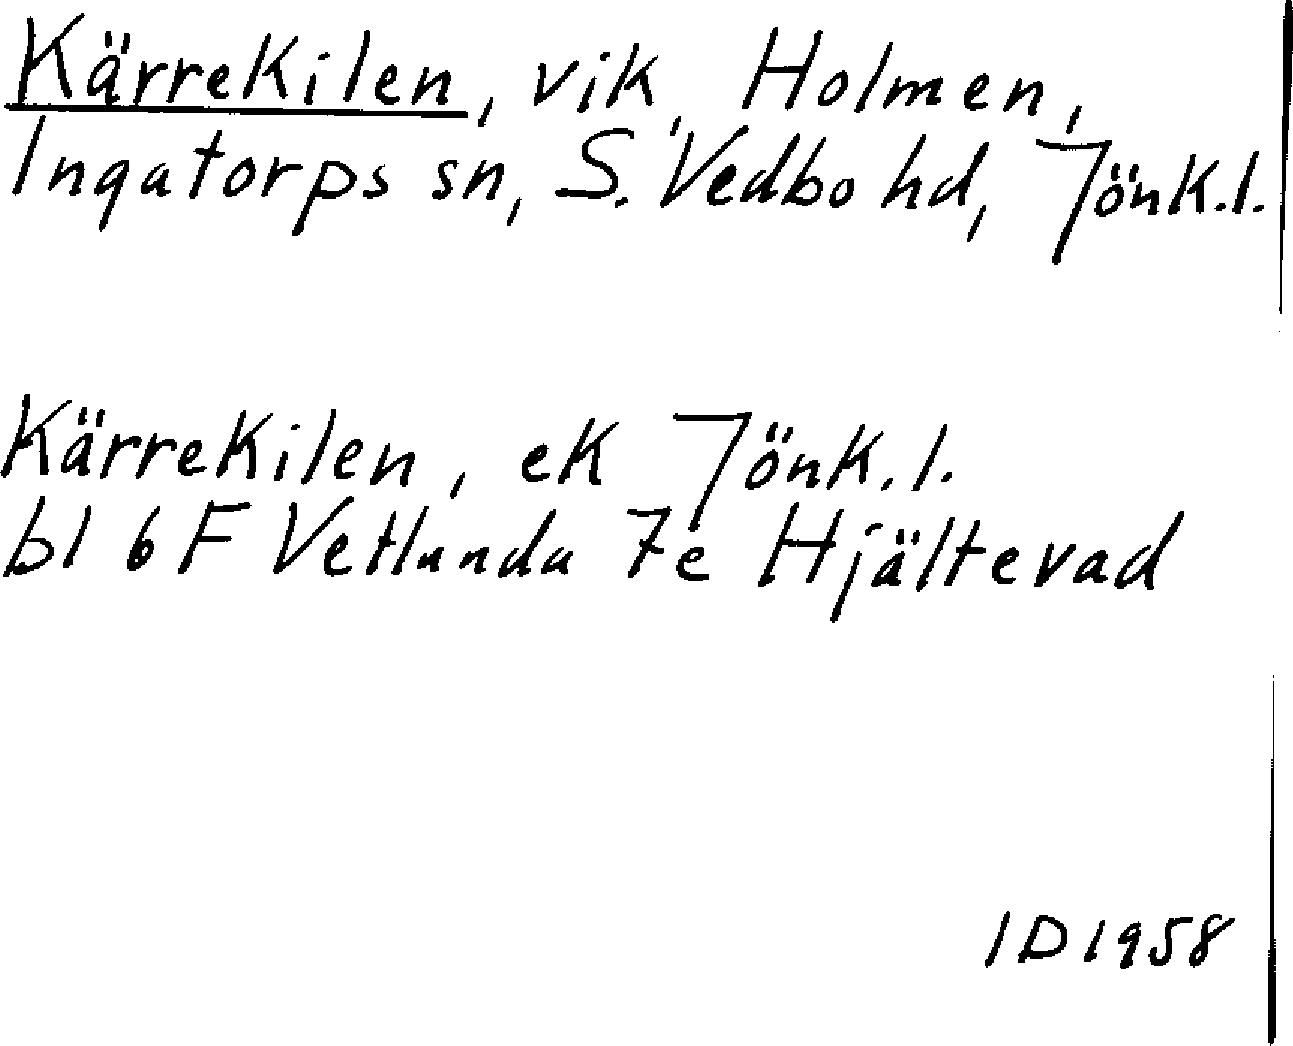 Kärrekilen, vik, Holmen,
Ingatorps sn, S. Vedbo hd, Jönk.l.
Kärrekilen, ek Jönk.l.
bl 6F Vetlunda 7e Hjältevad
ID 1958